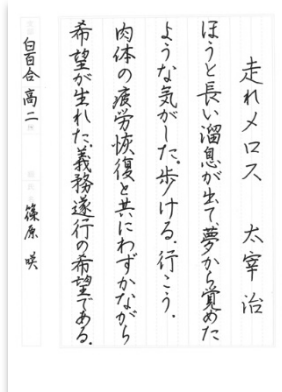 走れメロス　太宰治
ほうと長い溜息が出て、夢から覚めた
ような気がした。歩ける。行こう。
肉体の疲労恢復と共にわずかながら
希望が生れた。義務遂行の希望である。
白百合高二　篠原咲